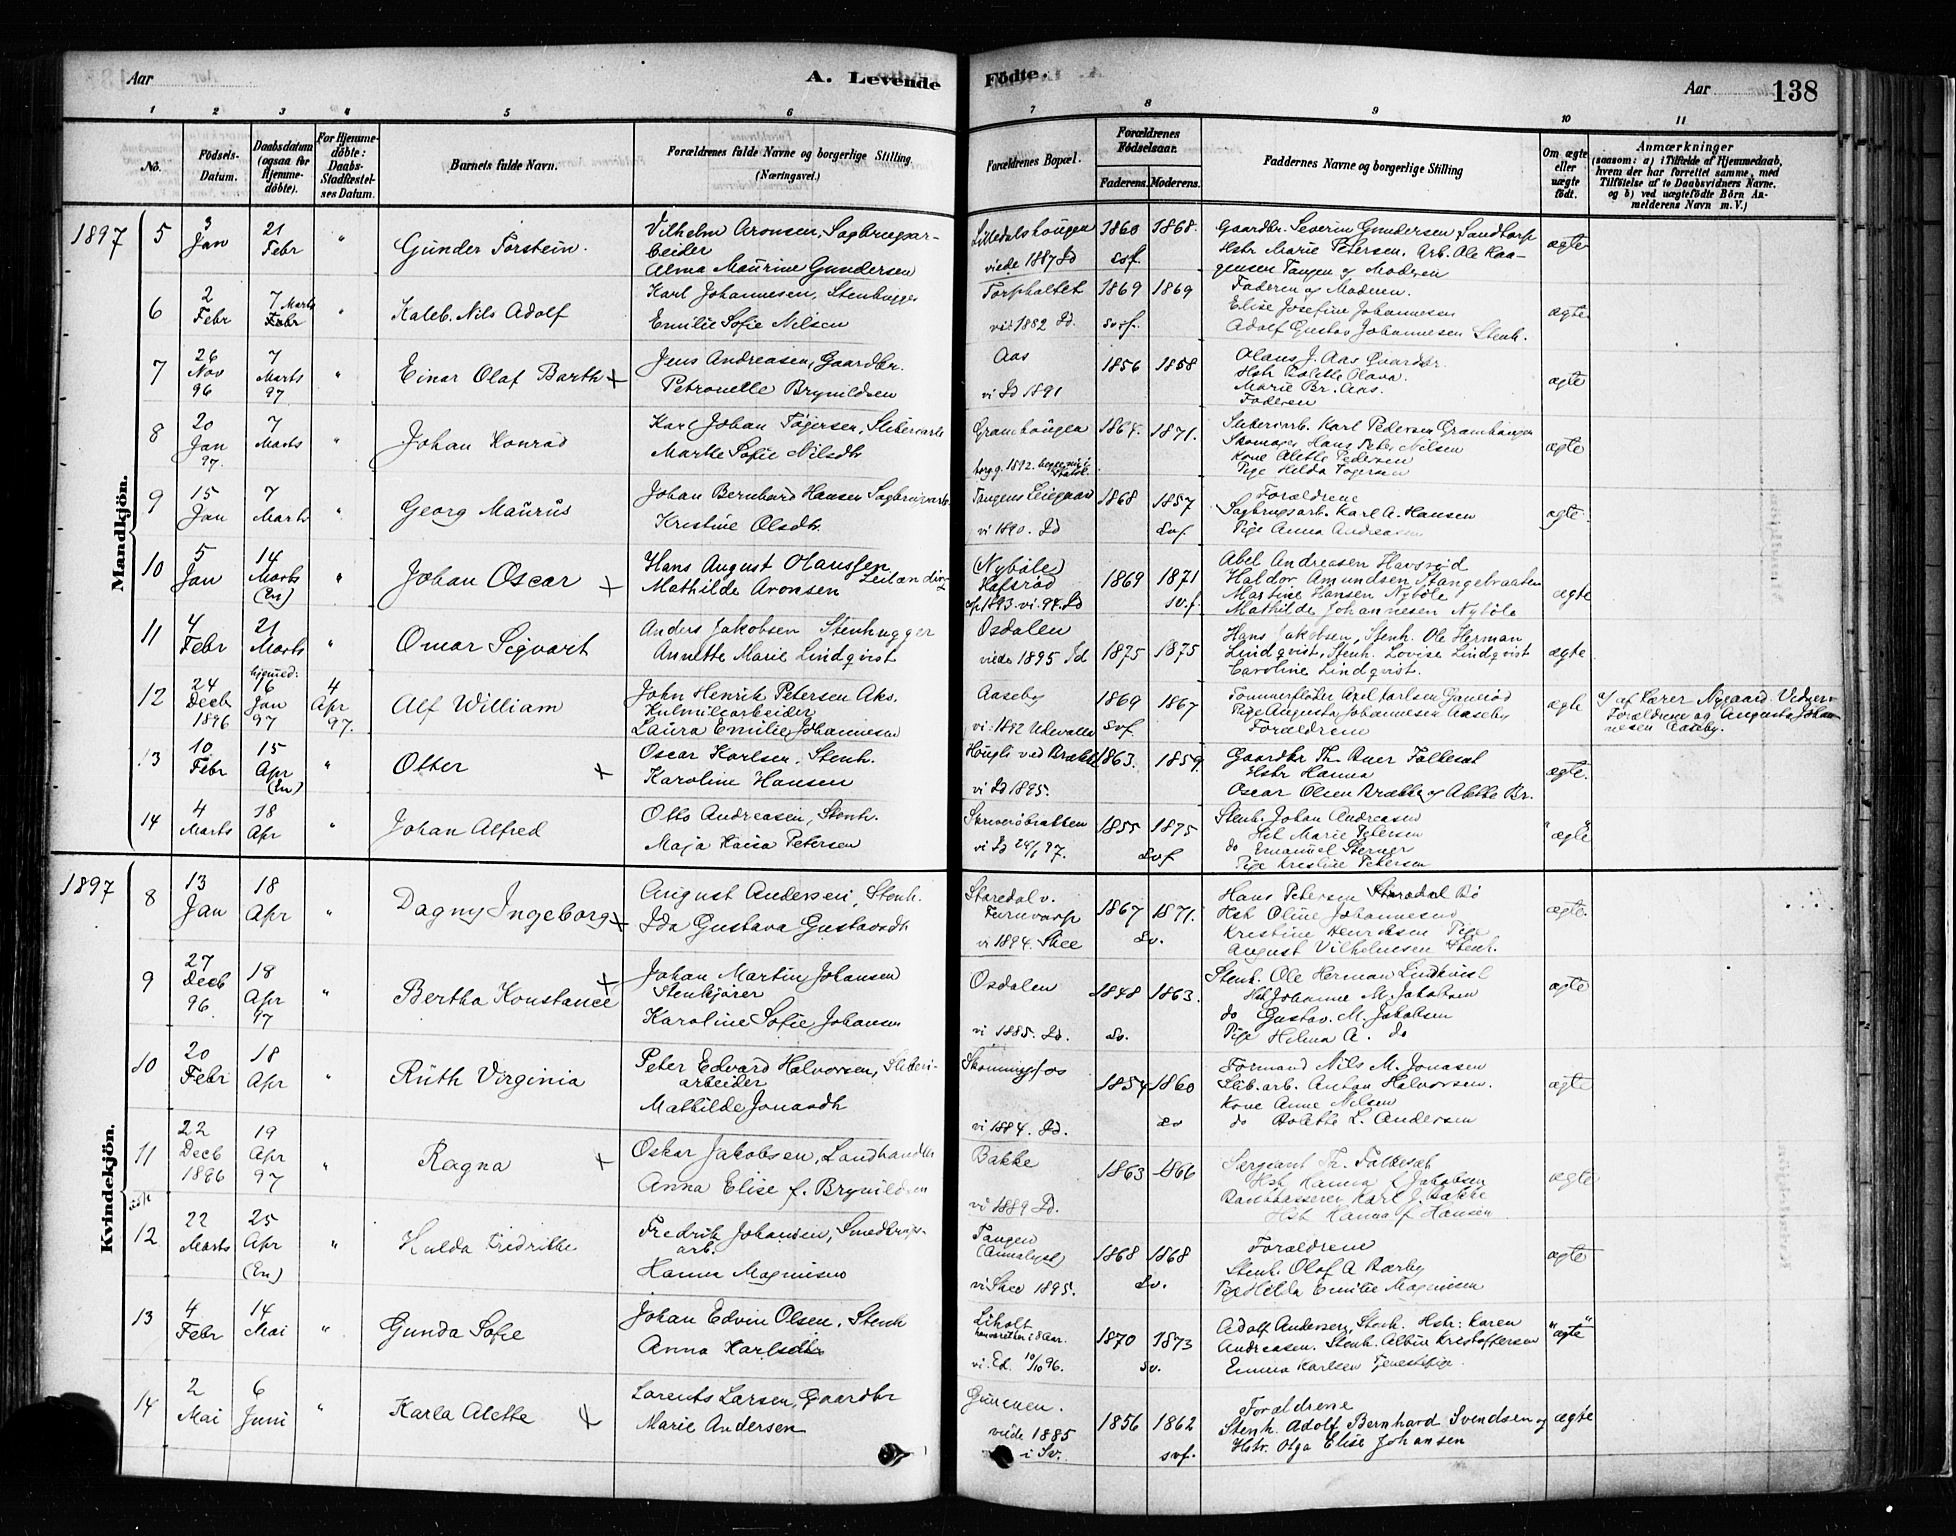 Aar
A. Levende
Födte.
Aar
138
1 2 3 4 5 6 7 8 9 10 11
No.
Födsels-Datum.
Daabsdatum (ogsaa for Hjemme-döbte).
For Hjemme-döbte: Daabs-Stadfæstel-ses Datum.
Barnets fulde Navn.
Forældrenes fulde Navne og borgerlige Stilling. (Næringsvei.)
Forældrenes Bopæl.
Forældrenes Födselsaar.
Faderens. Moderens.
Faddernes Navne og borgerlige Stilling
Om ægte eller uægte födt.
Anmærkninger
(saasom: a) i Tilfælde af Hjemmedaab,
hvem der har forrettet samme, med
Tilföielse af to Daabsvidners Navne.
og b) ved uægtefödte Börn An-
melderens Navn m. V.)
Mandkjön.
1897 5 3 Jan 21 Febr " Gunder Torstein.
Vilhelm Aronsen, Sagbrugsar-
beider
Alma Maurine Gundersen
viede 1887 Id
1860 1868.
svf.
Gaardbr. Severin Gundersen Sandtorp
Hstr Marie Petersen, Arb. Ole Haa-
gensen Tangen og Moderen
ægte
6 2 Febr 7 Marts Febr " Kaleb. Nils Adolf
Karl Johannesen, Stenhugger
Emilie Sofie Nilsen
Torpholtet
1869 1869
svf.
Faderen og Moderen.
Elise Josefine Johannesen
Adolf Gustav Johannesen Stenh.
ægte
7 26 Nov 96 7 Marts 97 " Einar Olaf Barth +
Jens Andreasen, Gaardbr.
Petronelle Brynildsen
Aas
vi Id 1891
1856 1858
Olaus J. Aas Gaardbr.
Marie Br. Aas.
Faderen
ægte
8 20 Jan 97. 7 Marts " Johan Konrad
Marthe Sofie Nilsdtr
1867. 1871.
Karl Pedersen
Skomager Hans Peter Nilsen
Kone Alette Pedersen
Pige Hilda
ægte
9 15 Jan 7 Marts " Georg Maurus
Johan Bernhard Hansen Sagbrugsarb.
Kristine Olsdtr.
vi 1890. Id
1868 1857
svf.
Forældrene
Sagbrugsarb. Karl A. Hansen
Pige Anna Andreasen
ægte.
10 5 Jan 14 Marts (En) " Johan Oscar +
Hans August Olaussen
Mathilde Aronsen
(Nyböle)
Hafsröd
1869 1871
sv.f.
Abel Andreasen Havsröd
Haldor Amundsen Stangebraaten
Martine Hansen Nyböle
Mathilde Johannesen Nyböle
ægte
11 4 Febr 21 Marts " Omar Sigvart
Anders Jakobsen Stenhugger
Annette Marie Lindqvist
Osdalen
viede 1895 Id
1875 1875
Hans Jakobsen, Stenh. Ole Herman
Lindqvist, Stenh. Lovise Lindqvist
Caroline Lindqvist.
ægte
12 24 Decb 1896 hjemmed: 16 Jan 97 4 Apr 97. Alf William
John Henrik Petersen Aks.
Kulmilearbeider
Laura Emilie Johannesen
Aaseby
vi. 1892 Udevalla
1869 1867
svf.
Tømmerfløder Axel Karlsen
Pige Augusta Johannesen Aaseby
Forældrene
ægte
Forældrene og Augusta Johan-
nesen Aaseby.
13 10 Febr 15 Apr (En) " Otter +
Oscar Karlsen, Stenh.
Karoline Hansen
vi Id 1895.
1863. 1859.
Gaardbr Th. Buer Folkesæt
Hstr Hanna
Oscar Olsen Brække og Alette Br.
ægte.
14 4 Marts 18 Apr " Johan Alfred
Otto Andreasen, Stenh.
Maja Kaisa Petersen
1855 1875
svf
Stenh. Johan Andreasen
Hst Marie Petersen
do Emanuel Sterner
Pige Kristine Petersen
"ægte"
Kvindekjön.
1897 8 13 Jan 18 Apr " Dagny Ingeborg +
August Andersen, Stenh.
Ida Gustava Gustavsdtr
Staredal v.
vi 1894. Skee
1867 1871.
sv.
Hans Petersen Staredal Bö
Hst Oline Johannesen
Kristine Henriksen Pige
August Vilhelmsen Stenh.
ægte.
9 27 Decb 96. 18 Apr 97 " Bertha Konstance +
Johan Martin Johansen
Stenkjører
Karoline Sofie Johansen
Osdalen
vi 1885. Id.
1848 1863.
sv.
Stenh. Ole Herman Lindkvist
Hst Johanne M. Jakobsen
do Gustav. M. Jakobsen
Pige Helma A. do
ægte
10 20 Febr 18 Apr " Ruth Virginia
Peter Edvard Halvorsen, Sliberi-
arbeider
Mathilde Jonasdtr
Skonningfos
vi 1884. Id.
1854 1860
sv
Formand Nils M. Jonasen
Slib. arb. Anton Halvorsen.
Kone Anne Nilsen
do Bolette L. Andersen
ægte
11 22 Decb 1896 19 Apr 97 " Ragna +
Oskar Jakobsen, Landhandler
Anna Elise f. Brynildsen
Bakke
vi 1889 Id.
1863 1866
Sergeant Th. Folkesæt
Hst Hanna f Jakobsen
Karl J. Bakke
Hst Hanna f Hansen
ægte
12 22 Marts 25 Apr (En) " Hulda Fredrikke
Fredrik Johansen, Smedbrugs-
arb.
Hanna Magnusen
Tangen
vi Skee 1895.
1868 1868
sv.
Forældrene
Stenh. Olof A Bærby
Pige Hilda Emilie Magnusen
ægte
13 4 Febr 14 Mai " Gunda Sofie
Johan Edvin Olsen, Stenh
Anna Karlsdtr
Liholt
vi. Ed. 10/10 96.
1870 1873
sv.
Adolf Andersen, Stenh. Hstr: Karen
Andreasen. Stenh. Albin Kristoffersen
Emma Karlsen Tjenestepige.
"ægte"
14 2 Mai 6 Juni " Karla Alette +
Lorents Larsen, Gaardbr
Marie Andersen
viede 1885
i Sv.
1856 1862
svf.
Forældrene
Stenh. Adolf Bernhard Svendsen og
Hstr. Olga Elise Johansen
ægte